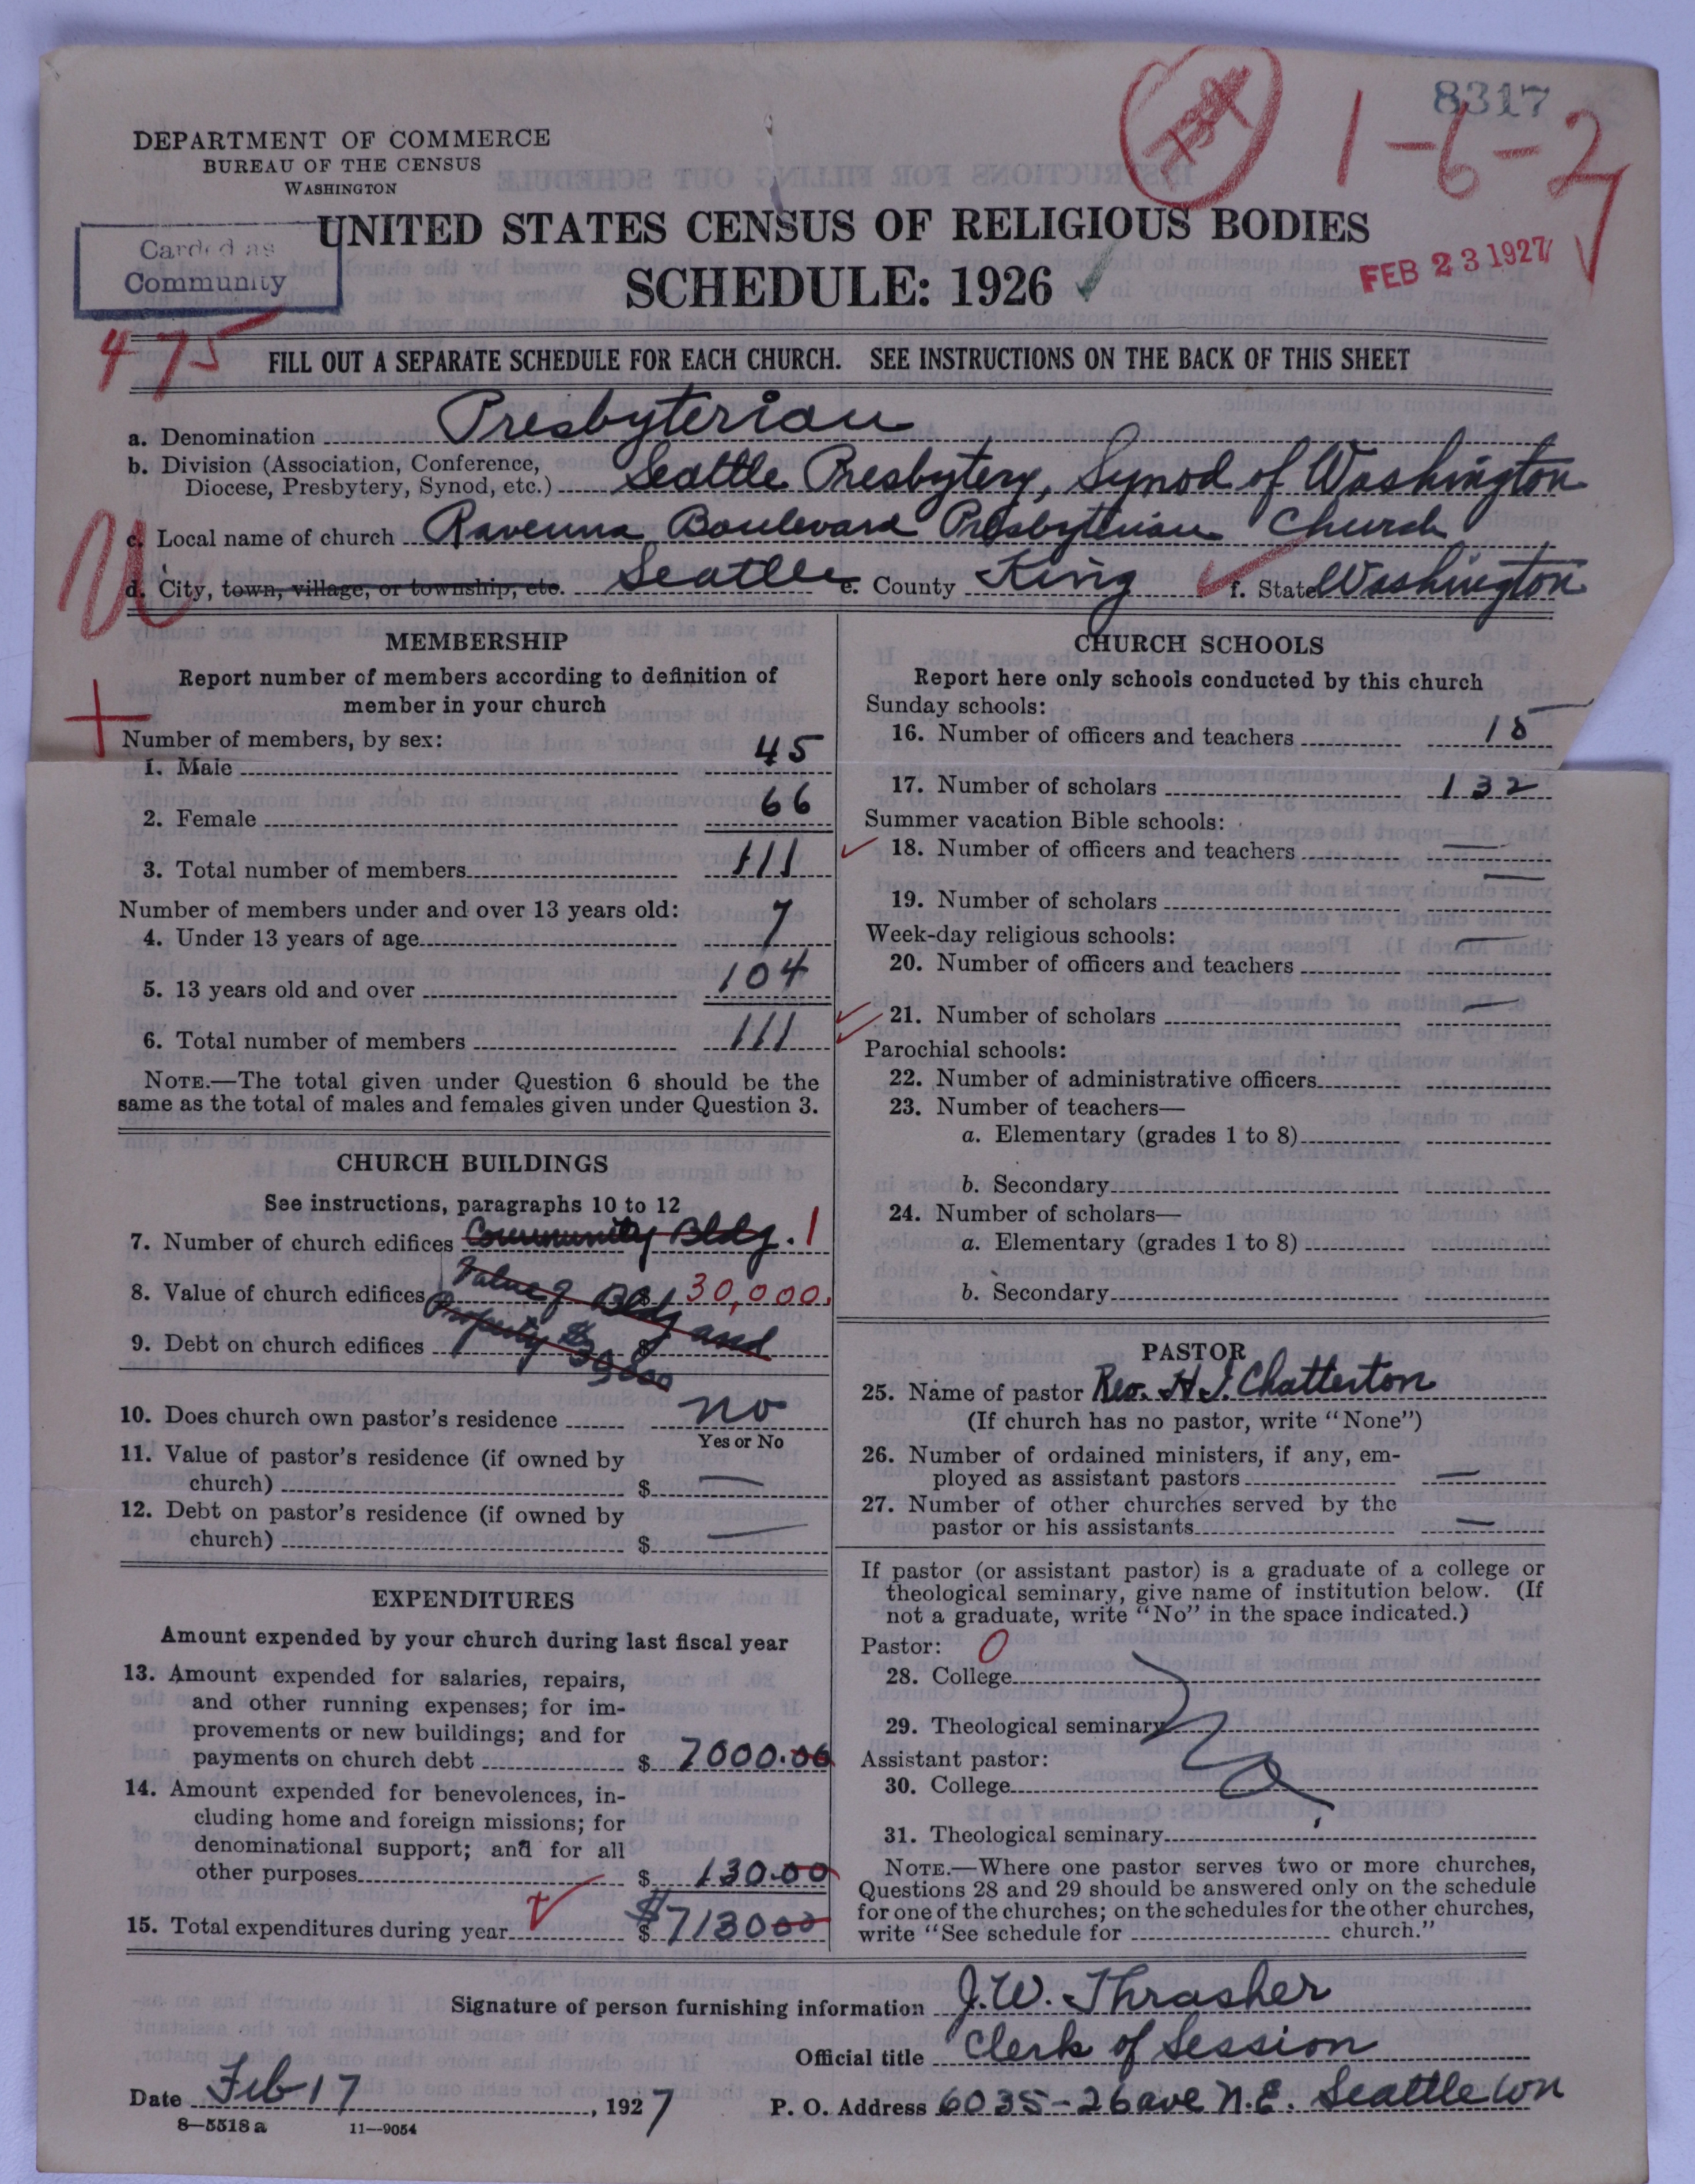 8317
1-6-2
DEPARTMENT OF COMMERCE
BUREAU OF THE CENSUS
WASHINGTON
Carded as
Community
UNITED STATES CENSUS OF RELIGIOUS BODIES
SCHEDULE: 1926
FEB 23 1927
475
FILL OUT A SEPARATE SCHEDULE FOR EACH CHURCH. SEE INSTRUCTIONS ON THE BACK OF THIS SHEET
a. Denomination Presbyterian
b. Division (Association, Conference,
Diocese, Presbytery, Synod, etc.) Seattle Presbytery, Synod of Washington
c. Local name of church Ravenna Boulevard Presbyterian Church
d. City, town, village, or township, etc. Seattle e. County King f. State Washington
MEMBERSHIP
Report number of members according to definition of
member in your church
Number of members, by sex:
1. Male 45
2. Female 66
3. Total number of members 111
Number of members under and over 13 years old:
4. Under 13 years of age 7
5. 13 years old and over 104
6. Total number of members 111
NOTE.—The total given under Question 6 should be the
same as the total of males and females given under Question 3.
CHURCH BUILDINGS
See instructions, paragraphs 10 to 12
7. Number of church edifices Community Bldg. 1
8. Value of church edifices Value of Bldg and $ 30,000
9. Debt on church edifices Property $30000 $
10. Does church own pastor's residence no
Yes or No
11. Value of pastor's residence (if owned by
church) $ —
12. Debt on pastor's residence (if owned by
church) $ —
EXPENDITURES
Amount expended by your church during last fiscal year
13. Amount expended for salaries, repairs,
and other running expenses; for im-
provements or new buildings; and for
payments on church debt $ 7000.00
14. Amount expended for benevolences, in-
cluding home and foreign missions; for
denominational support; and for all
other purposes $ 130.00
15. Total expenditures during year $ $713000
CHURCH SCHOOLS
Report here only schools conducted by this church
Sunday schools:
16. Number of officers and teachers 15
17. Number of scholars 132
Summer vacation Bible schools:
18. Number of officers and teachers —
19. Number of scholars —
Week-day religious schools:
20. Number of officers and teachers —
21. Number of scholars —
Parochial schools:
22. Number of administrative officers
23. Number of teachers—
a. Elementary (grades 1 to 8)
b. Secondary
24. Number of scholars—
a. Elementary (grades 1 to 8)
b. Secondary
PASTOR
25. Name of pastor Rev. H. J. Chatterton
(If church has no pastor, write "None")
26. Number of ordained ministers, if any, em-
ployed as assistant pastors —
27. Number of other churches served by the
pastor or his assistants —
If pastor (or assistant pastor) is a graduate of a college or
theological seminary, give name of institution below. (If
not a graduate, write "No" in the space indicated.)
Pastor: 0
28. College
29. Theological seminary
Assistant pastor:
30. College
31. Theological seminary
NOTE.—Where one pastor serves two or more churches,
Questions 28 and 29 should be answered only on the schedule
for one of the churches; on the schedules for the other churches,
write "See schedule for church."
Signature of person furnishing information J. W. Thrasher
Official title Clerk of Session
Date Feb 17, 1927 P. O. Address 6035-26 ave N.E. Seattle Wn
8—5518 a 11—9054